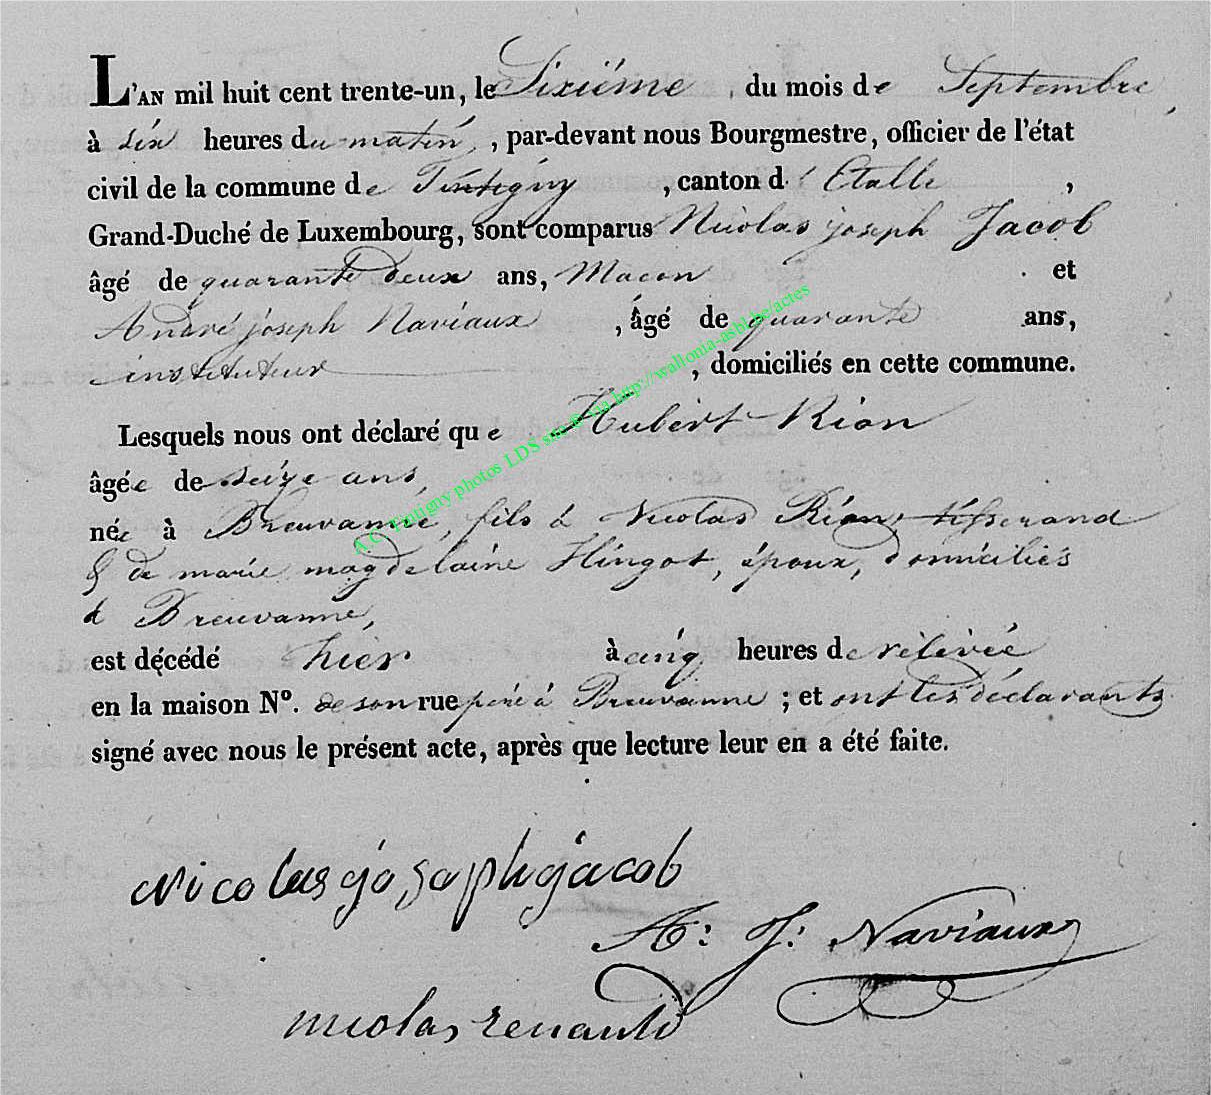 L'AN mil huit cent trente-un, le Sixiéme du mois de Septembre,
à six heures du matin, par-devant nous Bourgmestre, officier de l'état
civil de la commune de Tintigny, canton d'Etalle,
Grand-Duché de Luxembourg, sont comparus Nicolas joseph Jacob
âgé de quarante deux ans, Macon et
André joseph Naviaux, âgé de quarante ans,
instituteur, domiciliés en cette commune.
Lesquels nous ont déclaré que Hubert Rion
âgée de seize ans,
née à Breuvanne, fils à Nicolas Rion, tisserand
& de marie magdelaine Hingot, époux, domiciliés
à Breuvanne,
est décédé hier à cinq heures de relévée
en la maison N°. de son rue pére à Breuvanne ; et ont les déclarants
signé avec nous le présent acte, après que lecture leur en a été faite.
Nicolas josaph jacob
A: J: Naviaux
nicolas renauld
A.C. Tintigny photos LDS site © via http://wallonia-asbl.be/actes